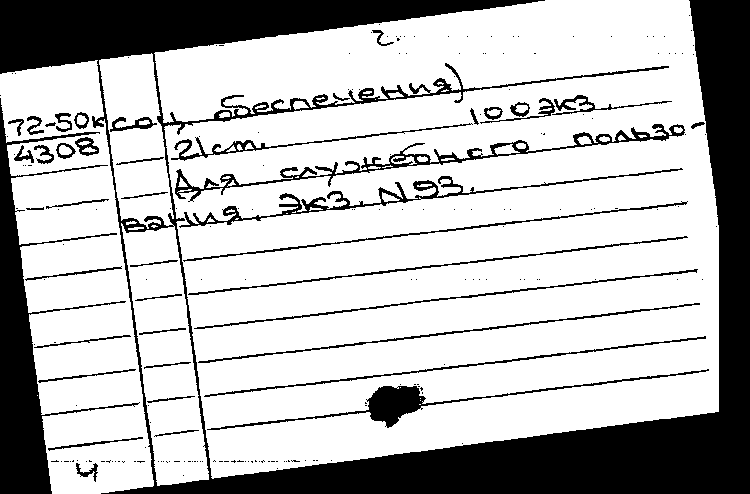 2.
72-50к соц. обеспечения)
4308 21cm. 100 экз.
Для служебного пользо-
вания. Экз. N93.
ч